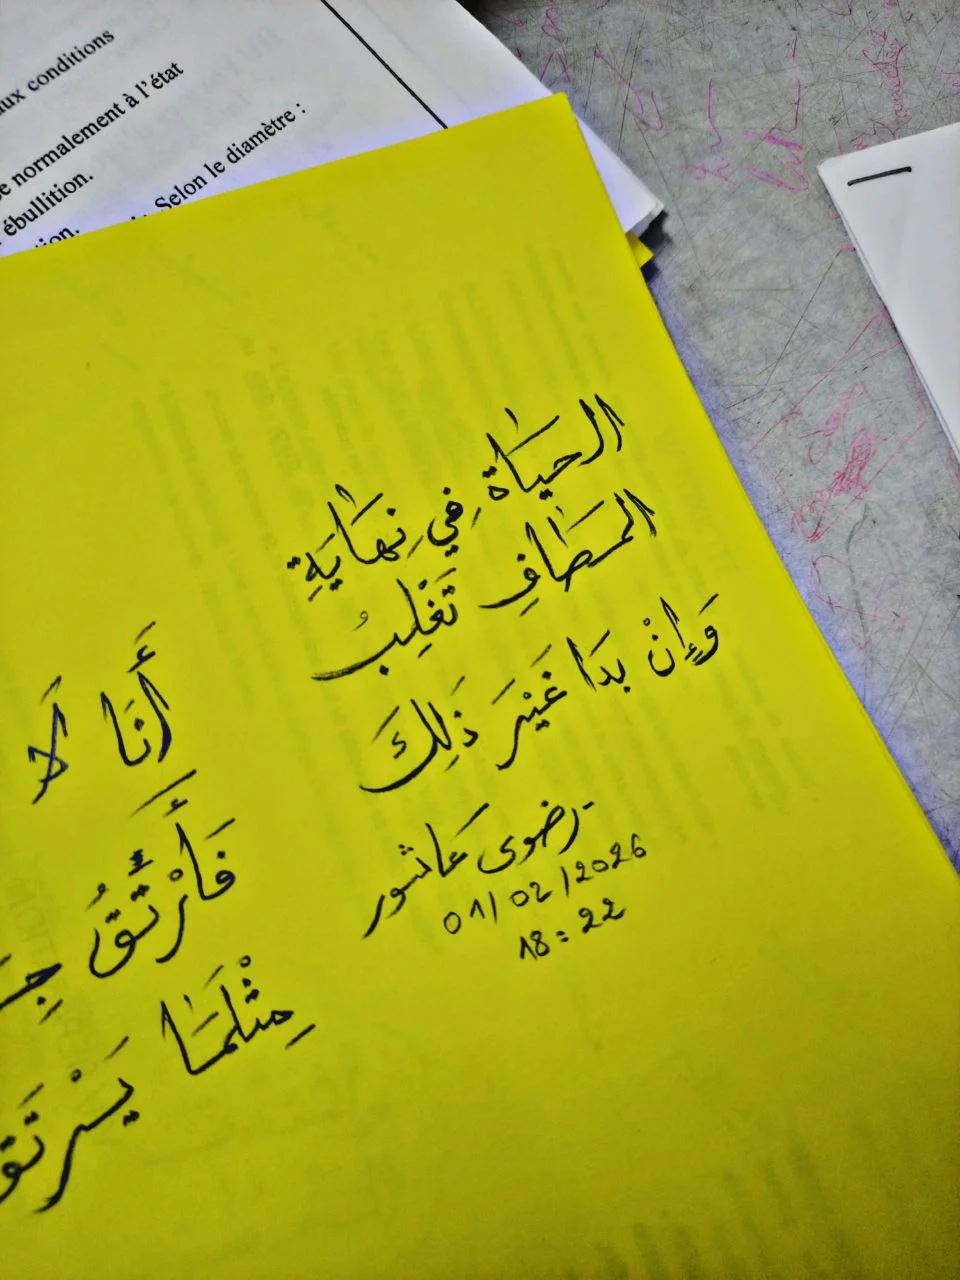 aux conditions
normalement à l'état
ébullition.
Selon le diamètre :
الحَيَاة فِي نِهَايَةِ
المَطَافِ تَغْلِبُ
وَإِنْ بَدَا غَيْرَ ذَلِكَ
رضوى عَاشور
01/02/2026
18:22
أَنَا لَا
فَأَرْتَقُ
مِثْلَمَا